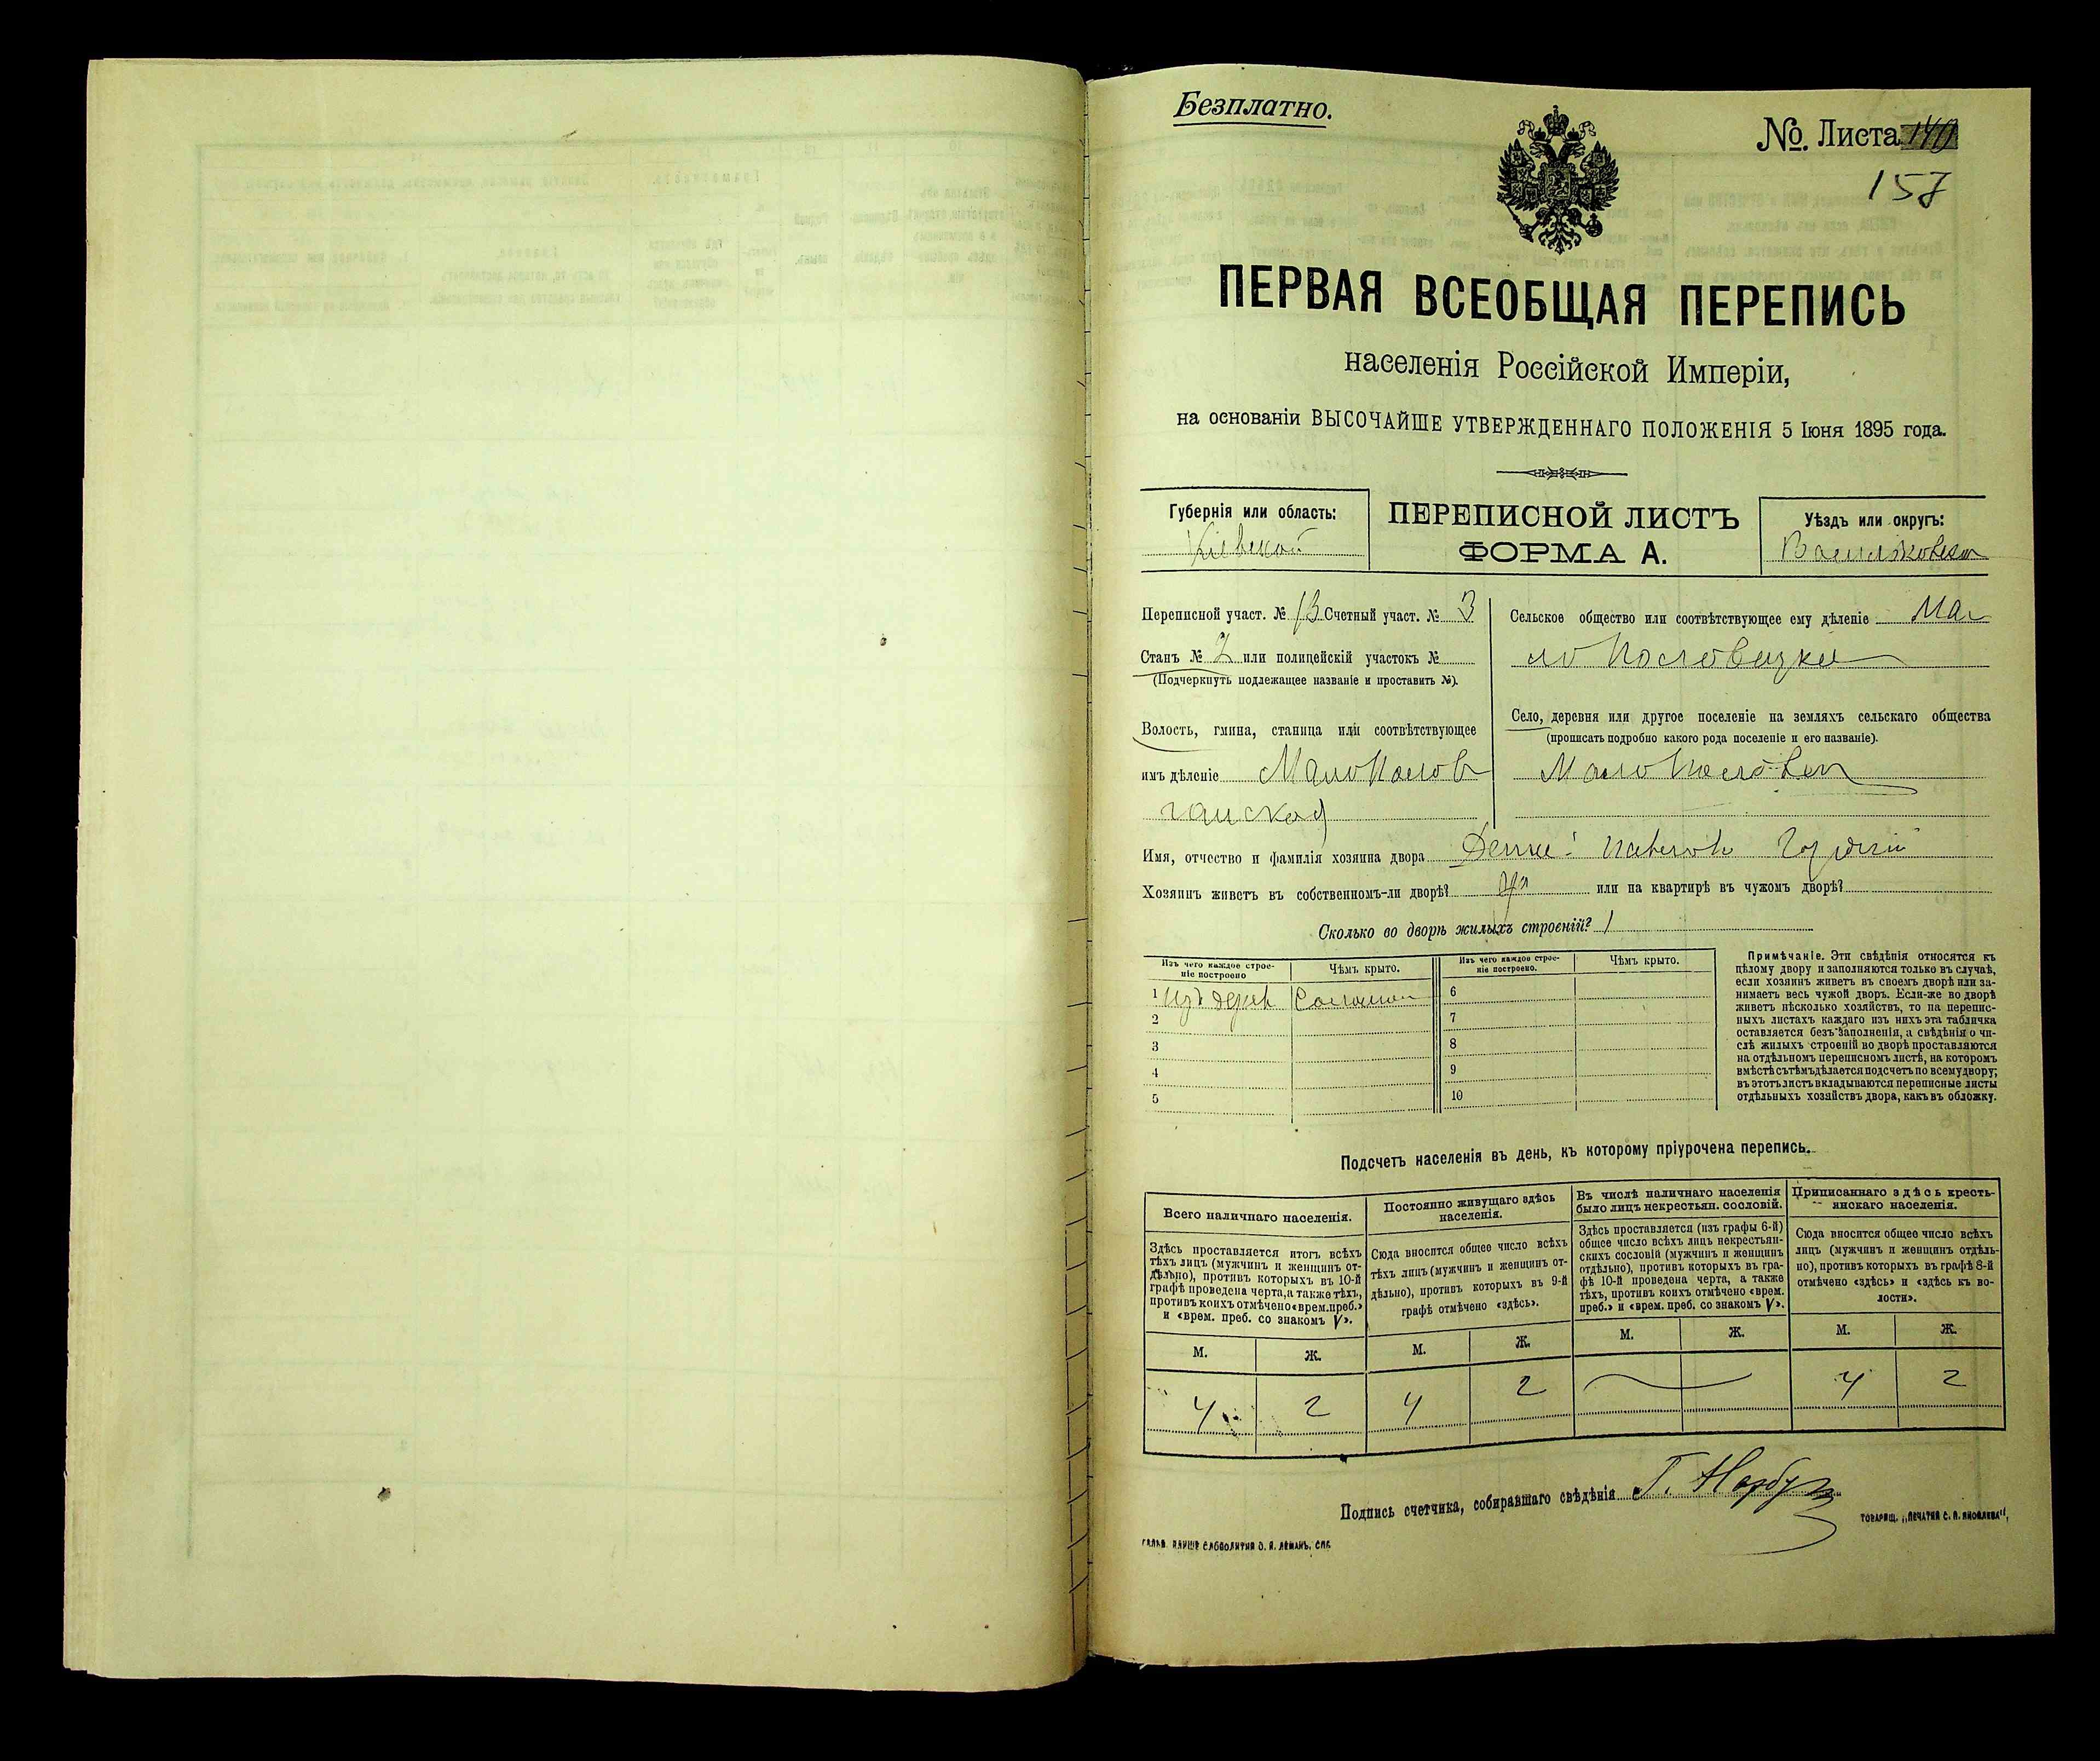 Безплатно.
№. Листа 140
157
ПЕРВАЯ ВСЕОБЩАЯ ПЕРЕПИСЬ
населенія Россійской Имперіи,
на основаніи ВЫСОЧАЙШЕ УТВЕРЖДЕННАГО ПОЛОЖЕНІЯ 5 Іюня 1895 года.
Губернія или область:
Кіевской
ПЕРЕПИСНОЙ ЛИСТЪ
ФОРМА А.
Уѣздъ или округъ:
Переписной участ. № 13 Счетный участ. № 3
Станъ № 2 или полицейскій участокъ №
(Подчеркнуть подлежащее названіе и проставить №).
Волость, гмина, станица или соотвѣтствующее
имъ дѣленіе
Сельское общество или соотвѣтствующее ему дѣленіе
Село, деревня или другое поселеніе на земляхъ сельскаго общества
(прописать подробно какого рода поселеніе и его названіе).
Имя, отчество и фамилія хозяина двора
Хозяинъ живетъ въ собственномъ-ли дворѣ? или на квартирѣ въ чужомъ дворѣ?
Сколько во дворѣ жилыхъ строеній? 1
Изъ чего каждое строе-
ніе построено
Чѣмъ крыто.
Изъ чего каждое строе-
ніе построено.
Чѣмъ крыто.
1 изъ дерев
6
2
7
3
8
4
9
5
10
Примѣчаніе. Эти свѣдѣнія относятся къ
цѣлому двору и заполняются только въ случаѣ,
если хозяинъ живетъ въ своемъ дворѣ или за-
нимаетъ весь чужой дворъ. Если-же во дворѣ
живетъ нѣсколько хозяйствъ, то на перепис-
ныхъ листахъ каждаго изъ нихъ эта табличка
оставляется безъ заполненія, а свѣдѣнія о чи-
слѣ жилыхъ строеній во дворѣ проставляются
на отдѣльномъ переписномъ листѣ, на которомъ
вмѣстѣ съ тѣмъ дѣлается подсчетъ по всему двору;
въ этотъ листъ вкладываются переписные листы
отдѣльныхъ хозяйствъ двора, какъ въ обложку.
Подсчетъ населенія въ день, къ которому пріурочена перепись.
Всего наличнаго населенія.
Здѣсь проставляется итогъ всѣхъ
тѣхъ лицъ (мужчинъ и женщинъ от-
дѣльно), противъ которыхъ въ 10-й
графѣ проведена черта, а также тѣхъ,
противъ коихъ отмѣчено «врем. преб.»
и «врем. преб. со знакомъ V».
Постоянно живущаго здѣсь
населенія.
Сюда вносится общее число всѣхъ
тѣхъ лицъ (мужчинъ и женщинъ от-
дѣльно), противъ которыхъ въ 9-й
графѣ отмѣчено «здѣсь».
Въ числѣ наличнаго населенія
было лицъ некрестьян. сословій.
Здѣсь проставляется (изъ графы 6-й)
общее число всѣхъ лицъ некрестьян-
скихъ сословій (мужчинъ и женщинъ
отдѣльно), противъ которыхъ въ гра-
фѣ 10-й проведена черта, а также
тѣхъ, противъ коихъ отмѣчено «врем.
преб.» и «врем. преб. со знакомъ V».
Приписаннаго здѣсь кресть-
янскаго населенія.
Сюда вносится общее число всѣхъ
лицъ (мужчинъ и женщинъ отдѣль-
но), противъ которыхъ въ графѣ 8-й
отмѣчено «здѣсь» и «здѣсь къ во-
лости».
М. Ж. М. Ж. М. Ж. М. Ж.
4 2 4 2 4 2
Подпись счетчика, собиравшаго свѣдѣнія
ТОВАРИЩ. „ПЕЧАТНЯ С. П. ЯКОВЛЕВА".